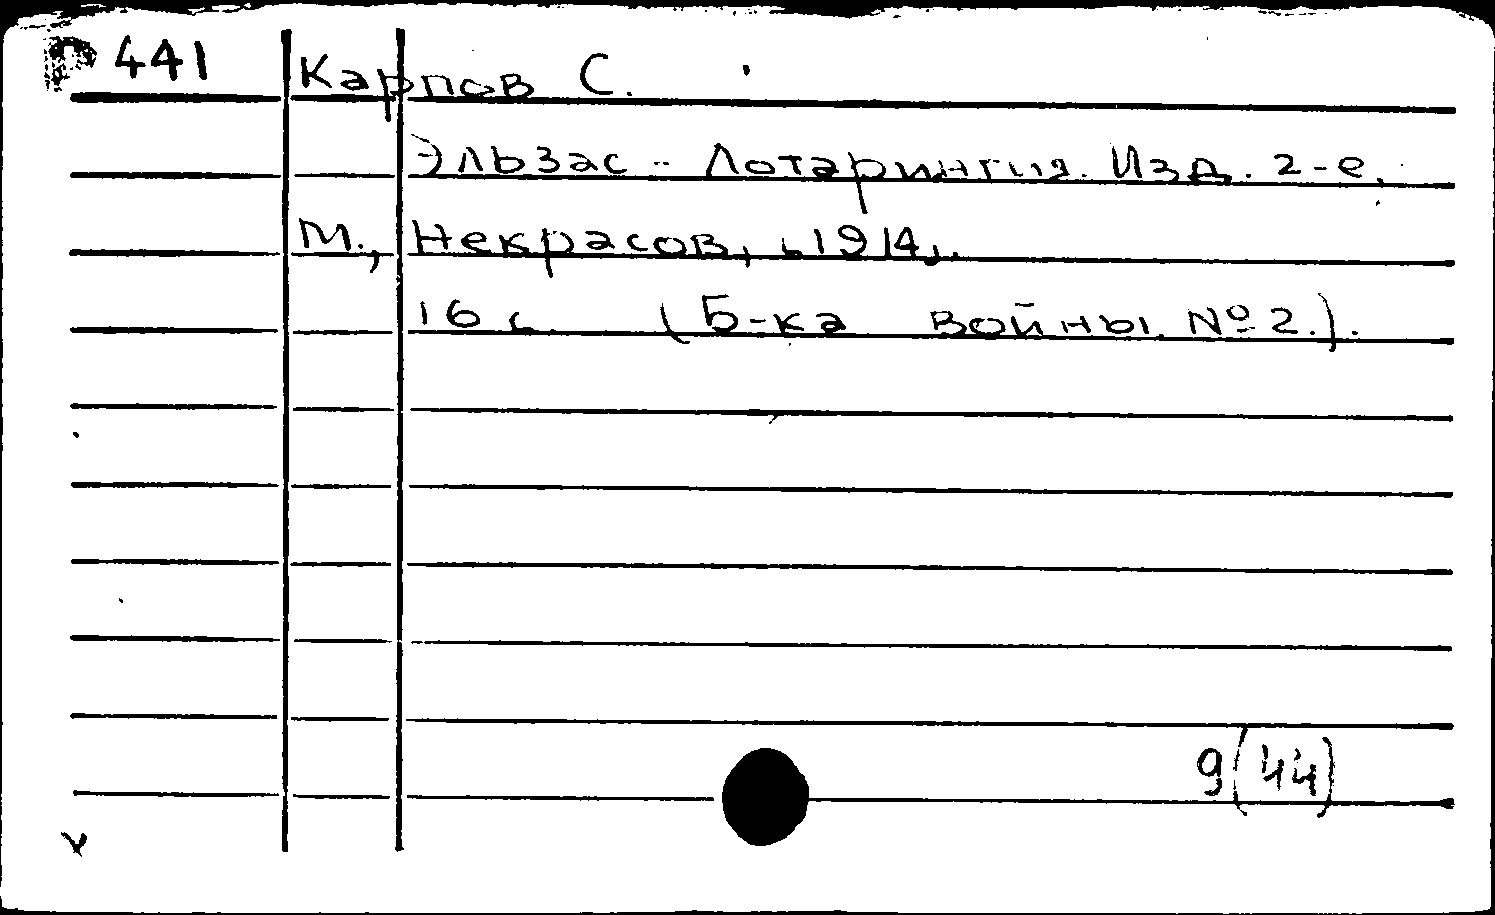 441 Карпов С.
Эльзас - Лотарингия. Изд. 2-е.
М., Некрасов, 1914.
16 с. (Б-ка войны. № 2.).
9(44)